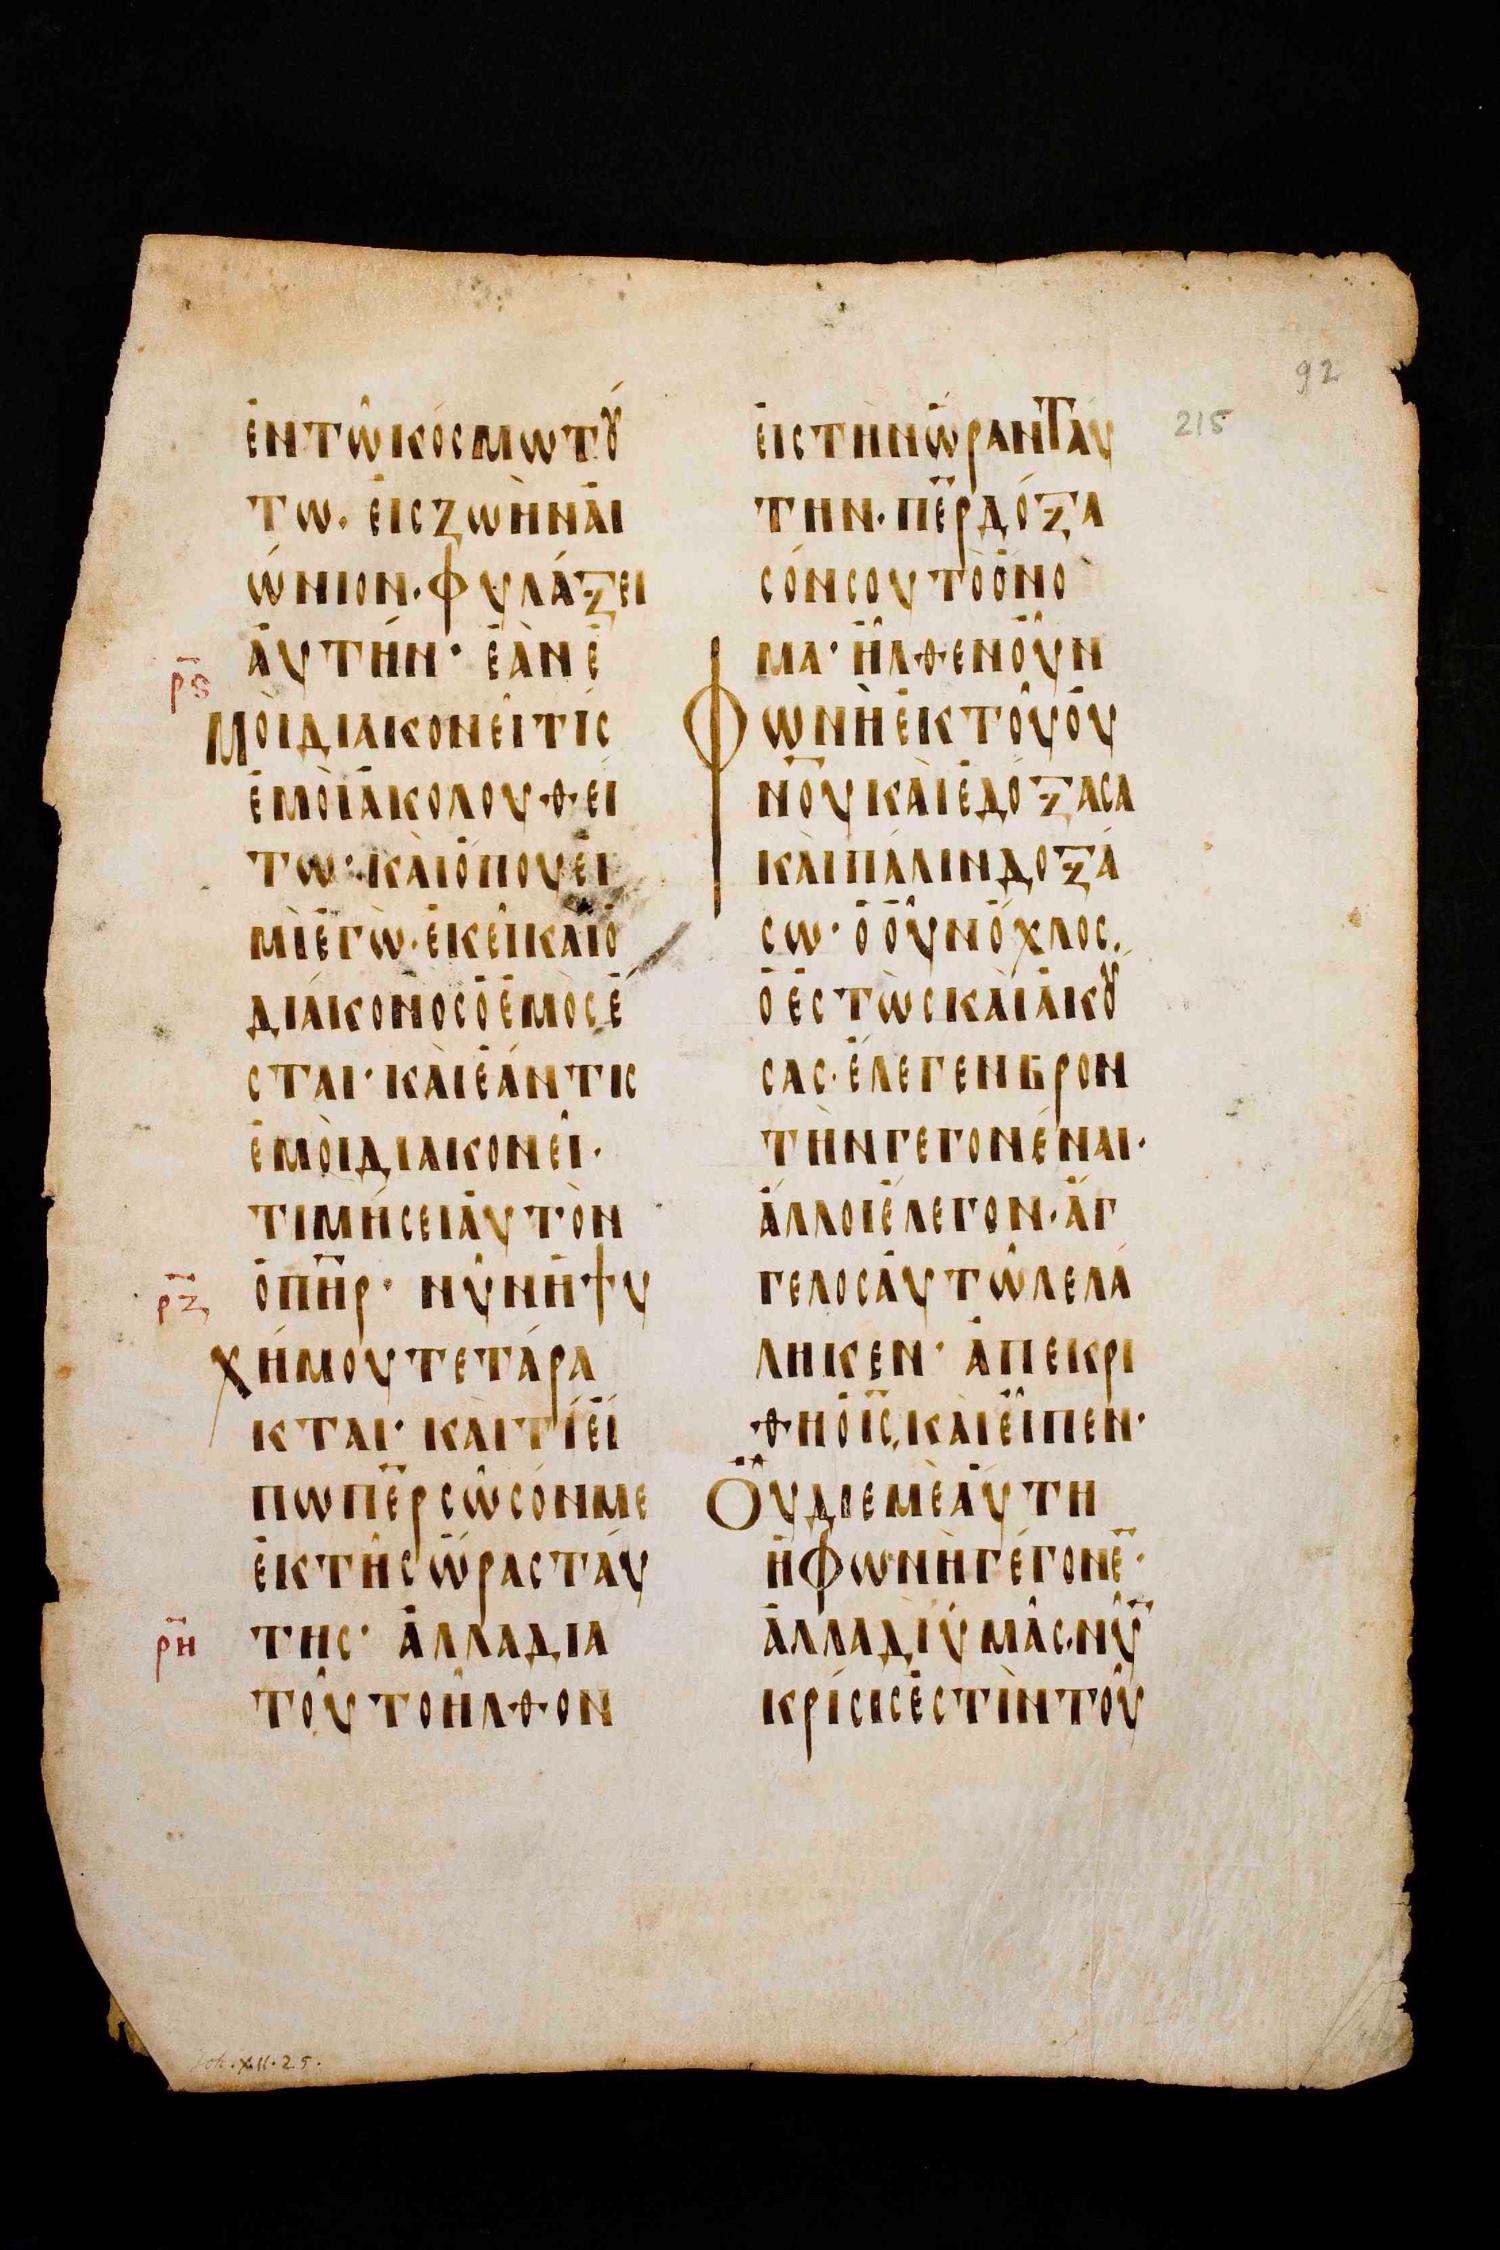 92
215
ἐν τῶ κόσμω τȣ́
τω· ἐις ζωὴν ἀι
ώνιον· φυλάξει
ἀυτήν· ἐὰν ἐ
ρ̅ϛ̅
μὸι διακονεῖ τίς
ἐμὸι ἀκολουθεί
τω· κὰι ὅπου ἐι
μὶ ἐγὼ· ἐκεῖ κὰι ὁ
διάκονος ὁ ἐμὸς ἔ
σται· κὰι ἐάν τις
ἐμὸι διακονεῖ·
τιμήσει ἀυτὸν
ρ̅ζ̅
ὁ π̅η̅ρ̅· νῦν ἡ ψυ
χή μου τετάρα
κται· κὰι τί εἴ
πω π̅ε̅ρ̅ σῶσόν με
ἐκ τῆς ὥρας τάυ
ρ̅η̅
της· ἀλλα δια
τοῦτο ἦλθον
ἐις τὴν ὥραν τάυ
την· π̅ε̅ρ̅ δόξα
σόν σου τὸ ὄνο
μα· ἦλθεν οὖν
φωνὴ ἐκ τοῦ ο̅υ̅
ν̅ο̅υ̅ κὰι ἐδόξασα
κὰι πάλιν δοξά
σω· ὁ οὖν ὄχλος,
ὁ ἑστὼς κὰι ἀκȣ́
σας· ἔλεγεν βρον
τὴν γεγονέναι·
ἄλλοι ἔλεγον· ἄγ
γελος ἀυτῶ λελά
ληκεν· ἀπεκρί
θη ὁ ι̅ς̅, κὰι εἶπεν·
Ὀυ δι εμὲ ἀύτη
ἡ φωνὴ γέγονε̅·
ἀλλα δι ὑμᾶς· νῦ̅
κρίσις ἐστὶν τοῦ
Joh. XII. 25.